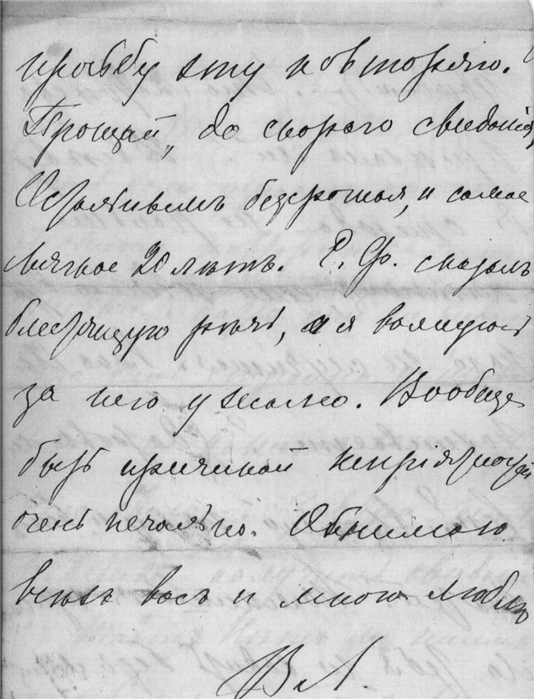 просьбу эту повторяю.
Прощай, до скораго свиданія,
безропотная, и самое
мягкое 20 лѣтъ. Е. Ф. сказалъ
блестящую рѣчь, и я волнуюсь
за него ужасно. Вообще
быть причиной непріятностей
очень печально. Обнимаю
всѣхъ васъ и много люблю
В Л.